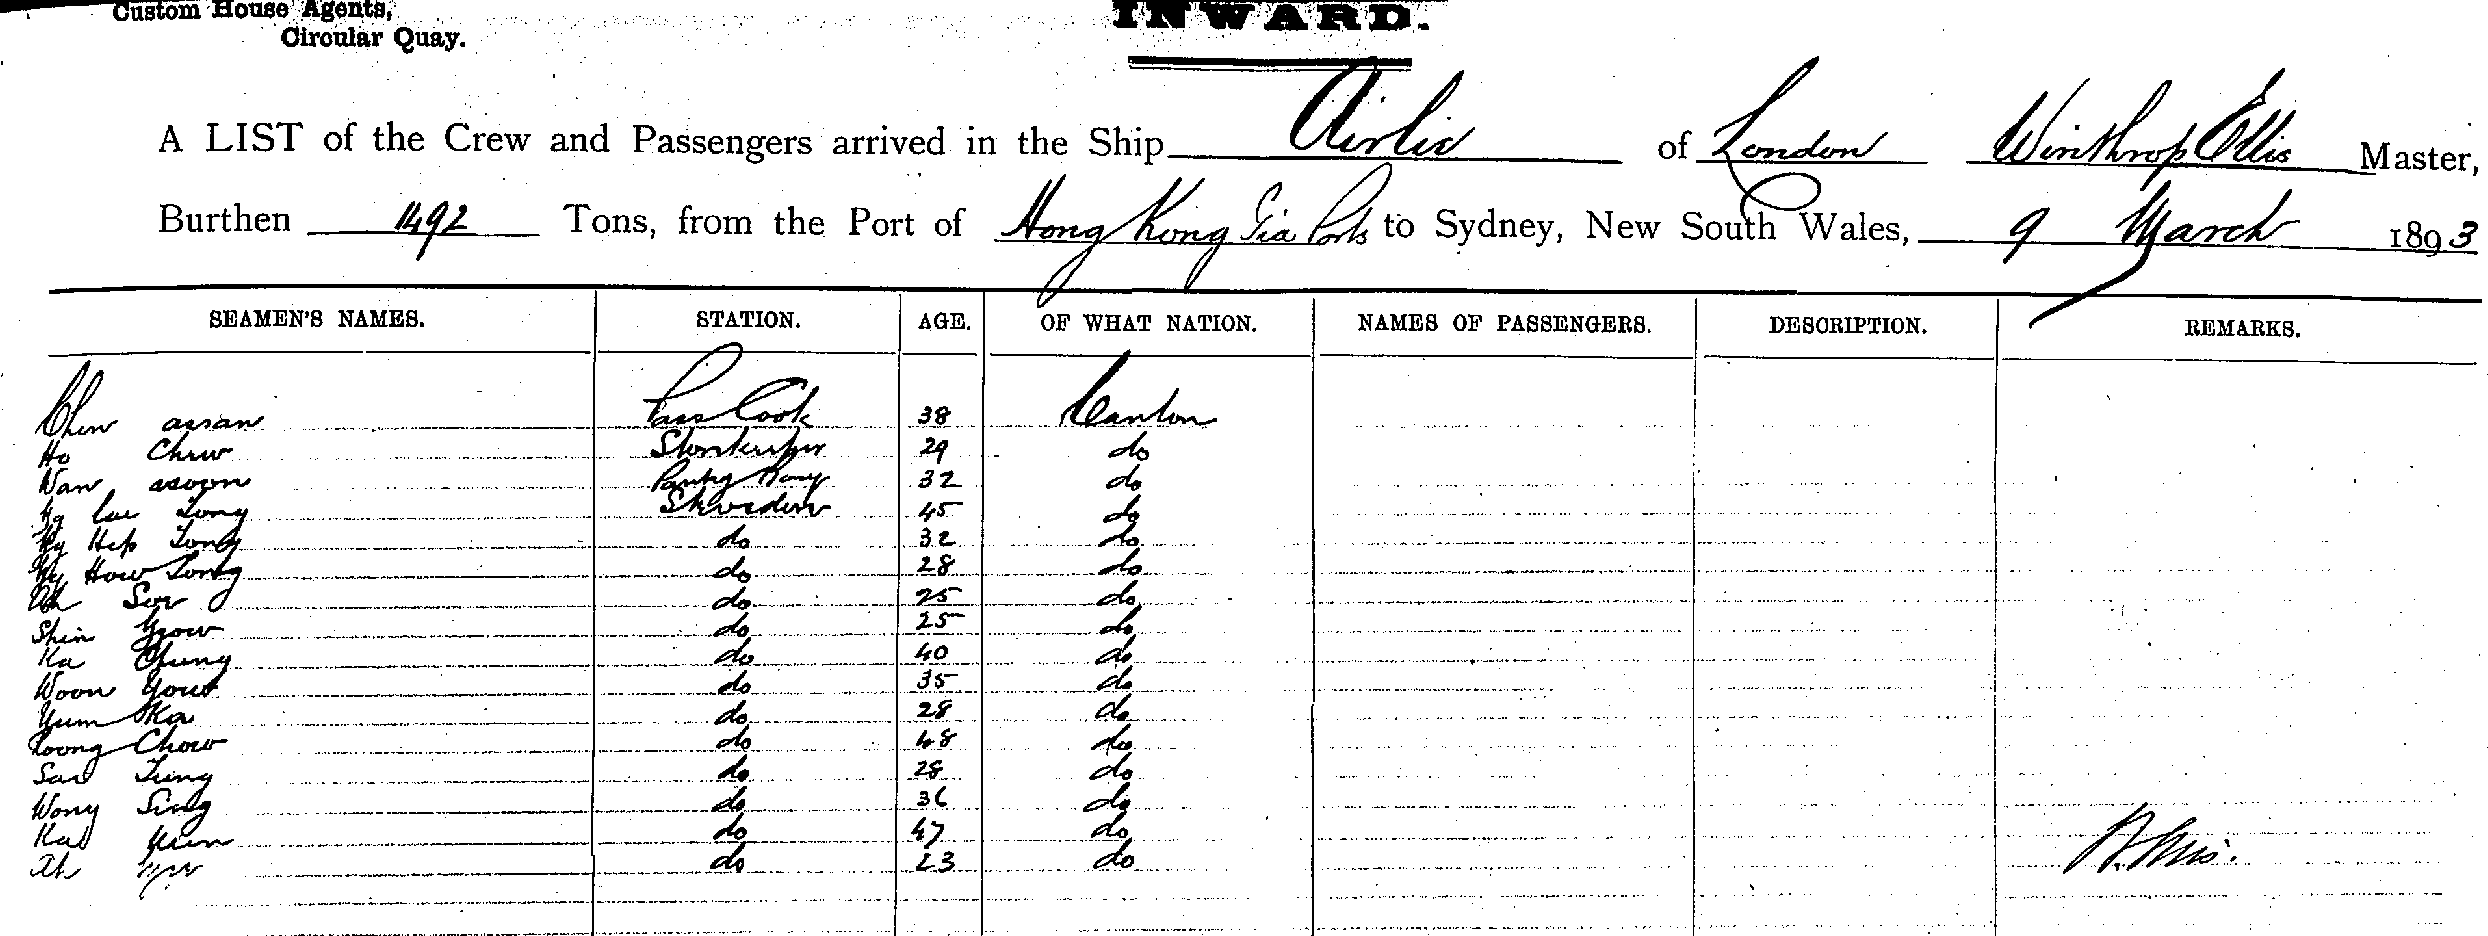 Custom House Agents,
Circular Quay.
INWARD.
A LIST of the Crew and Passengers arrived in the Ship Airlie of London Winthrop Ellis Master,
Burthen 1492 Tons, from the Port of Hong Kong Via Ports to Sydney, New South Wales, 9 March 1893
SEAMEN'S NAMES. STATION. AGE. OF WHAT NATION. NAMES OF PASSENGERS. DESCRIPTION. REMARKS.
Chin assan Pass Cook 38 Canton
Ho Chew Storekeeper 29 do
Wan Pantry Boy 32 do
Tong 45 do
Ng Hep Tong do 32 do
Ng How Tong do 28 do
Ah do 25 do
Shin do 25 do
Ka Chung do 40 do
Woon Yow do 35 do
Yum Ka do 28 do
Loong Chow do 48 do
San Tung do 28 do
Wong Sing do 36 do
do 47 do
Ah do 23 do